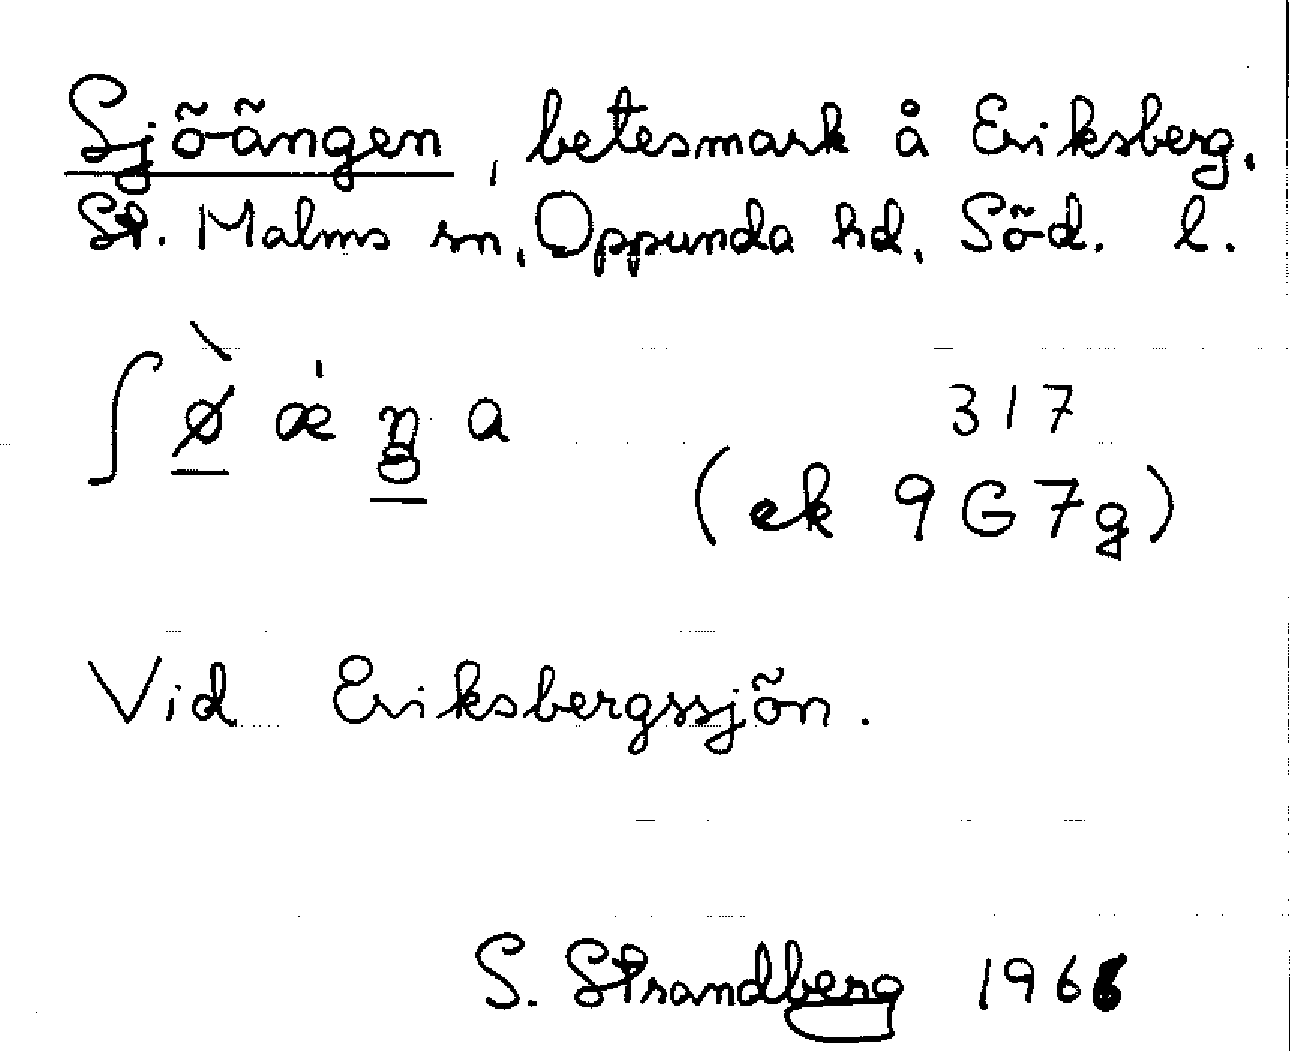 Sjöängen, betesmark å Eriksberg,
St. Malms sn, Oppunda hd, Söd. l.
317
(ek 9G7g)
Vid Eriksbergssjön.
S. Strandberg 1966